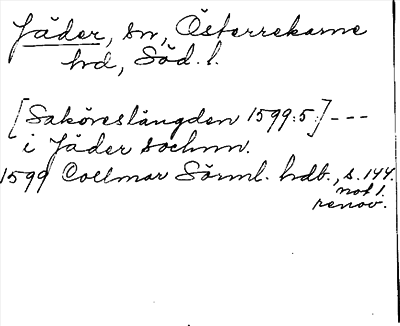 Jäder, sn, Österrekarne
hd, Söd. l.
[Saköreslängden 1599:5:] ---
i Jäder sochnn.
1599 Collmar Sörml. hdb., s. 144.
not 1.
renov.